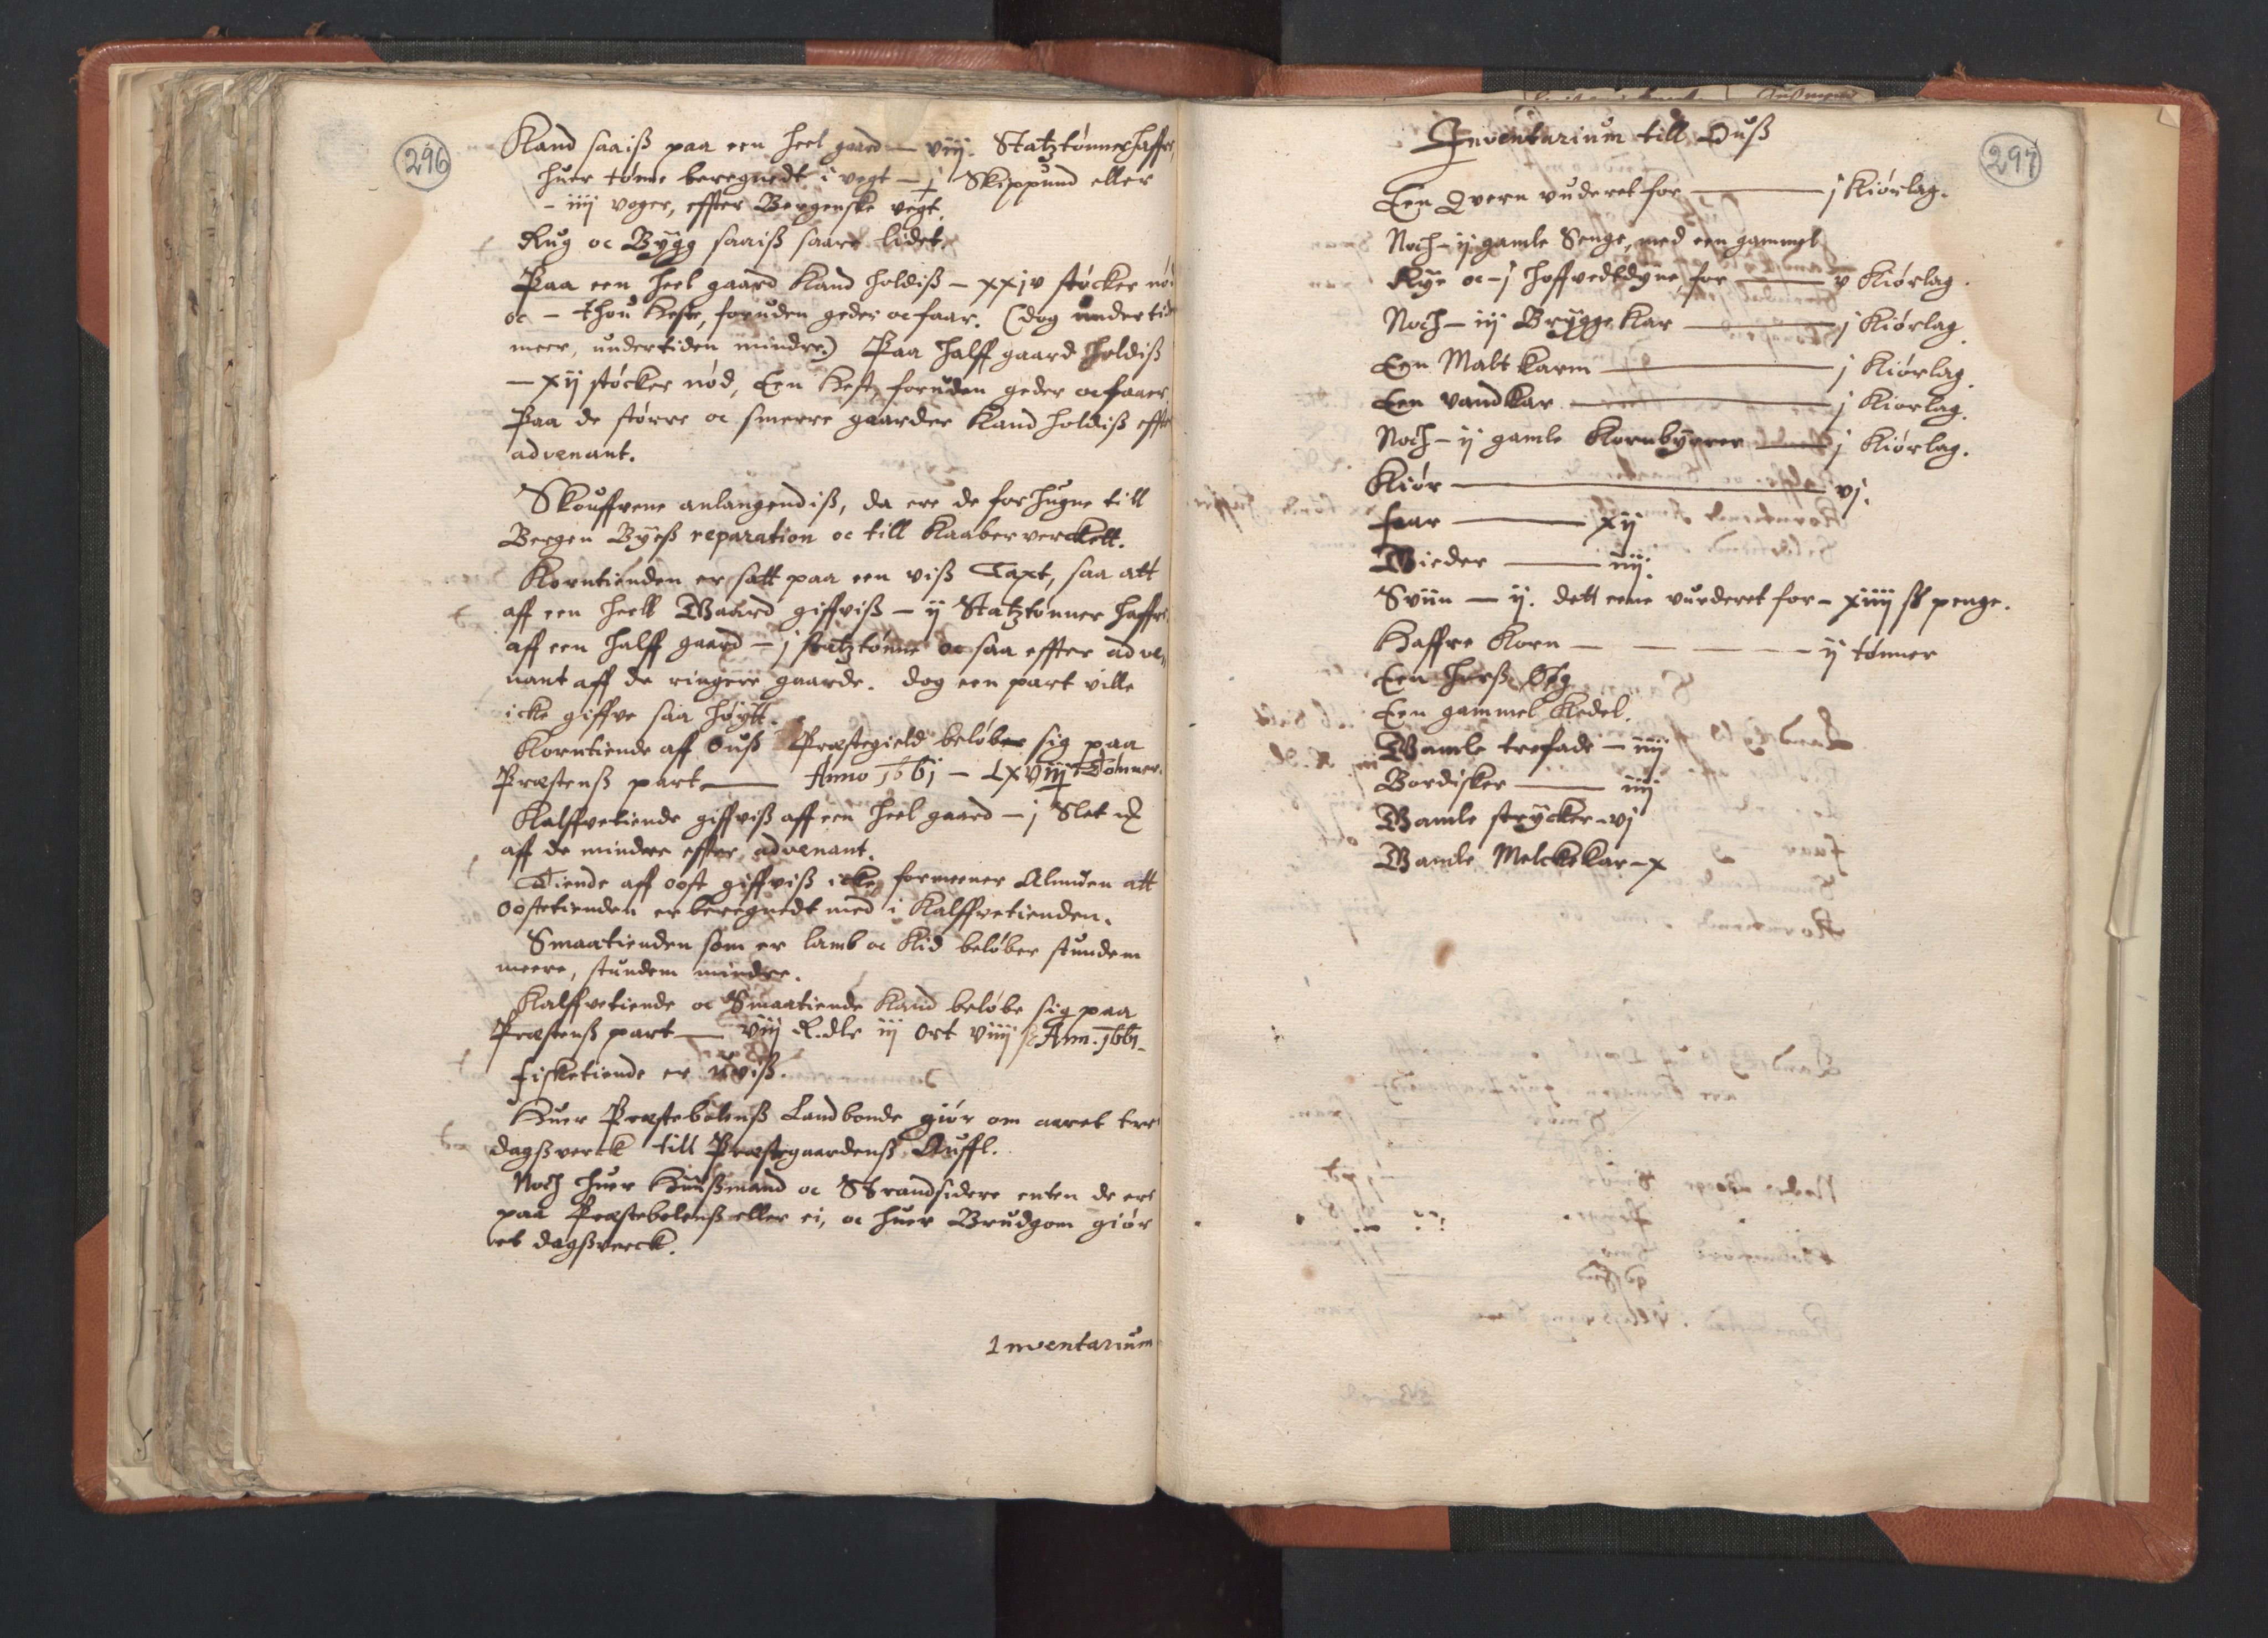 296
Kand saaiß paa een heel gaard — viij. Statztønner haffre,
huer tønne beregnedt i vegt — j Skippund eller
- iiij voger, effter Bergenske vegt.
Rug oc Bÿgg saaiß saare lidet.
Paa een heel gaard Kand holdiß — xxiv støcker nød
oc — thou Heste, foruden geder oc faar. (dog undertiden
meer, undertiden mindre) Paa halff gaard holdiß
— xij støcker nød, Een Hest, foruden geder oc faaer.
Paa de større oc smerre gaarder Kand holdiß effter
advenant.
Skouffvene anlangendiß, da ere de forhugne till
Bergen Byeß reparation oc till Kaaberverckett.
Korntienden er satt paa een viß Taxt, saa att
aff een heell Gaard giffviß — ij Statztønner haffre
aff een halff gaard — j statztønne oc saa effter adve,
nant aff de ringere gaarde. dog een part ville
icke giffve saa høÿtt.
Korntiende aff Ouß Præstegield beløber sig paa
Præstenß part — Anno 1661 — Lxviij Tønner.
Kalffvetiende giffviß aff een heel gaard — j Slet
aff de mindere effter advenant.
Tiende aff oost giffviß icke, formeener Almuen att
oostetienden er beregnedt med i Kalffvetienden.
Smaatienden som er lamb oc Kid beløber stundem
meere, stundem mindre.
Kalffvetiende oc Smaatiende Kand beløbe sig paa
Præstenß part — viij R.dlr iij ort viiij ß Ann. 1661.
Fisketiende er uviß.
Huer Præstebolenß Landbonde giør om aaret tre
dagßverck till Præstegaardenß Auffl.
Noch huer Hußmand oc Strandsidere enten de ere
paa Præstebolenß eller ei, oc huer Brudgom giør
eet dagßverck.
Inventarium
297
Inventarium till Ouß
Een Qvern vuderet for — j Kiørlag.
Noch — ij gamle Senge, med een gammel
Rye oc — j hoffvedtdyne, for — v Kiørlag.
Noch — iij Brygge Kar — j Kiørlag.
Een Malt karm — j Kiørlag.
Een vandkar — j Kiørlag.
Noch — ij gamle Kornbÿrrer — j Kiørlag.
Kiør — vj.
Faar — xij
Gieder — iiij.
Sviin — ij. dett eene vurderet for — xiiij ß penge.
Haffre Korn — ij tønner
Een horß Øg
Een gammel Kedel.
Gamle trefade — iiij
Bordisker — iiij
Gamle strÿcker — vj
Gamle Melckekar — x